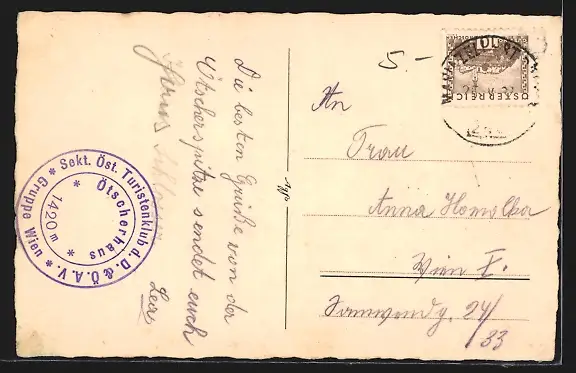 Die besten Grüße von der
Ötscherspitze sendet euch
Hans
5.-
An
Frau
Anna Homolka
Wien X.
24/
33
Gruppe Wien * Sekt. Öst. Turistenklub d. D. & Ö. A. V. *
* Ötscherhaus *
1420 m
ÖSTERREICH